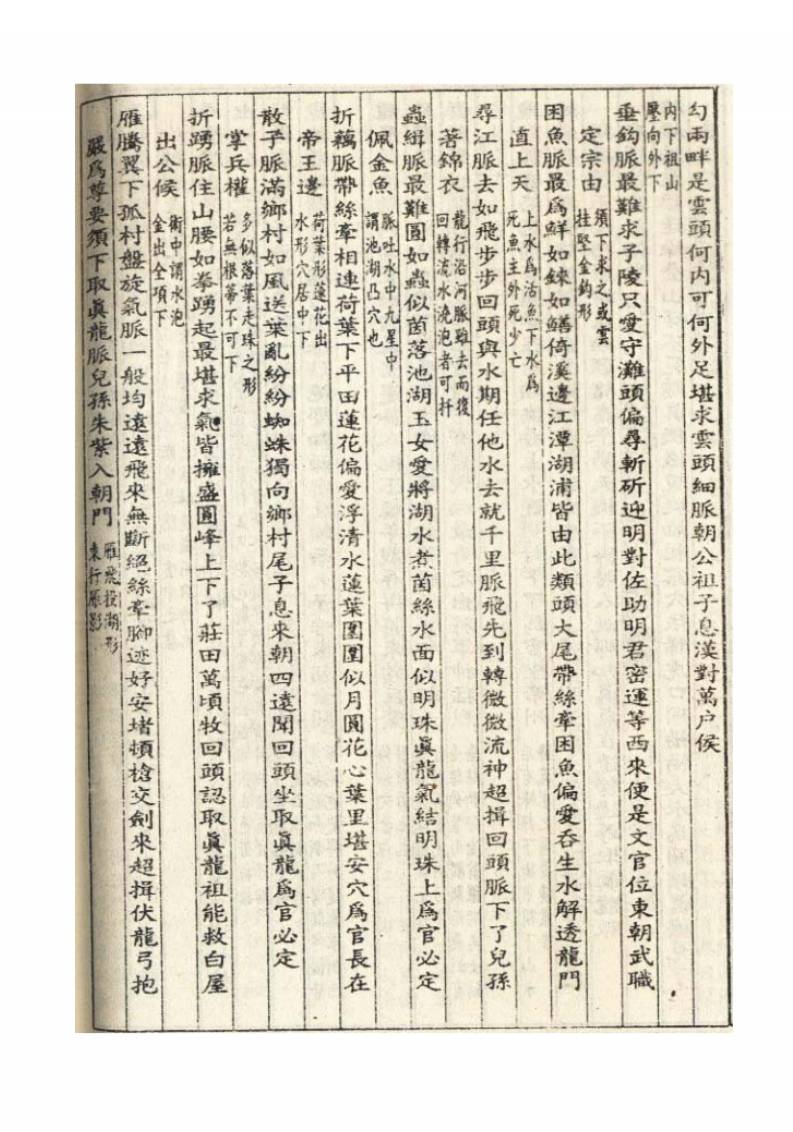 勾兩畔是雲頭何內可何外足堪求雲頭細脈朝公祖子息漢對萬户侯
內下祖山
壓向外下
垂鈎脈最難求子陵只愛守灘頭偏尋斬斫迎明對佐助明君密運等西來便是文官位東朝武職
定宗由
須下求之或雲
挂壁金鈎形
困魚脈最爲鮮如鍊如鱔倚溪邊江潭湖浦皆由此類頭大尾帶絲牽困魚偏愛吞生水解透龍門
直上天
上水爲活魚下水爲
死魚主外死少亡
尋江脈去如飛步步回頭與水期任他水去就千里脈飛先到轉微微流神超揖回頭脈下了兒孫
著錦衣
龍行沿河脈雖去而復
回轉流水澆泡者可扦
蟲緝脈最難圓如蟲似茵落池湖玉女愛將湖水煮茵絲水面似明珠眞龍氣結明珠上爲官必定
佩金魚
脈吐水中九星中
謂池湖凸穴也
折藕脈帶絲牽相連荷葉下平田蓮花偏愛浮清水蓮葉團圓似月圓花心葉里堪安穴爲官長在
帝王邊
荷葉形蓮花出
水形穴居中下
散子脈滿鄉村如風送葉亂紛紛蜘蛛獨向鄉村尾子息來朝四遠聞回頭坐取眞龍爲官必定
掌兵權
多似落葉走珠之形
若無根蒂不可下
折踴脈住山腰如拳踴起最堪求氣皆擁盛圓峰上下了莊田萬頃牧回頭認取眞龍祖能救白屋
出公候
術中謂水泡
金出全項下
雁騰翼下孤村盤旋氣脈一般均遠遠飛來無斷絕絲牽腳迹好安堵頓槍交劍來超揖伏龍弓抱
嚴爲尊要須下取眞龍脈兒孫朱紫入朝門
雁飛投湖形
東行雁影